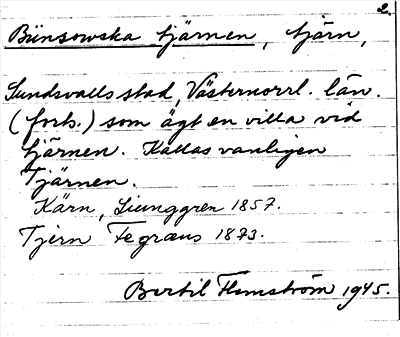 2.
Bünsowska tjärnen, tjärn,
Sundsvalls stad, Västernorrl. län.
(forts.) som ägt en villa vid
tjärnen. Kallas vanligen
Tjärnen.
Kärn, Ljunggren 1857.
Tjern Fegræus 1873.
Bertil Flemström 1945.